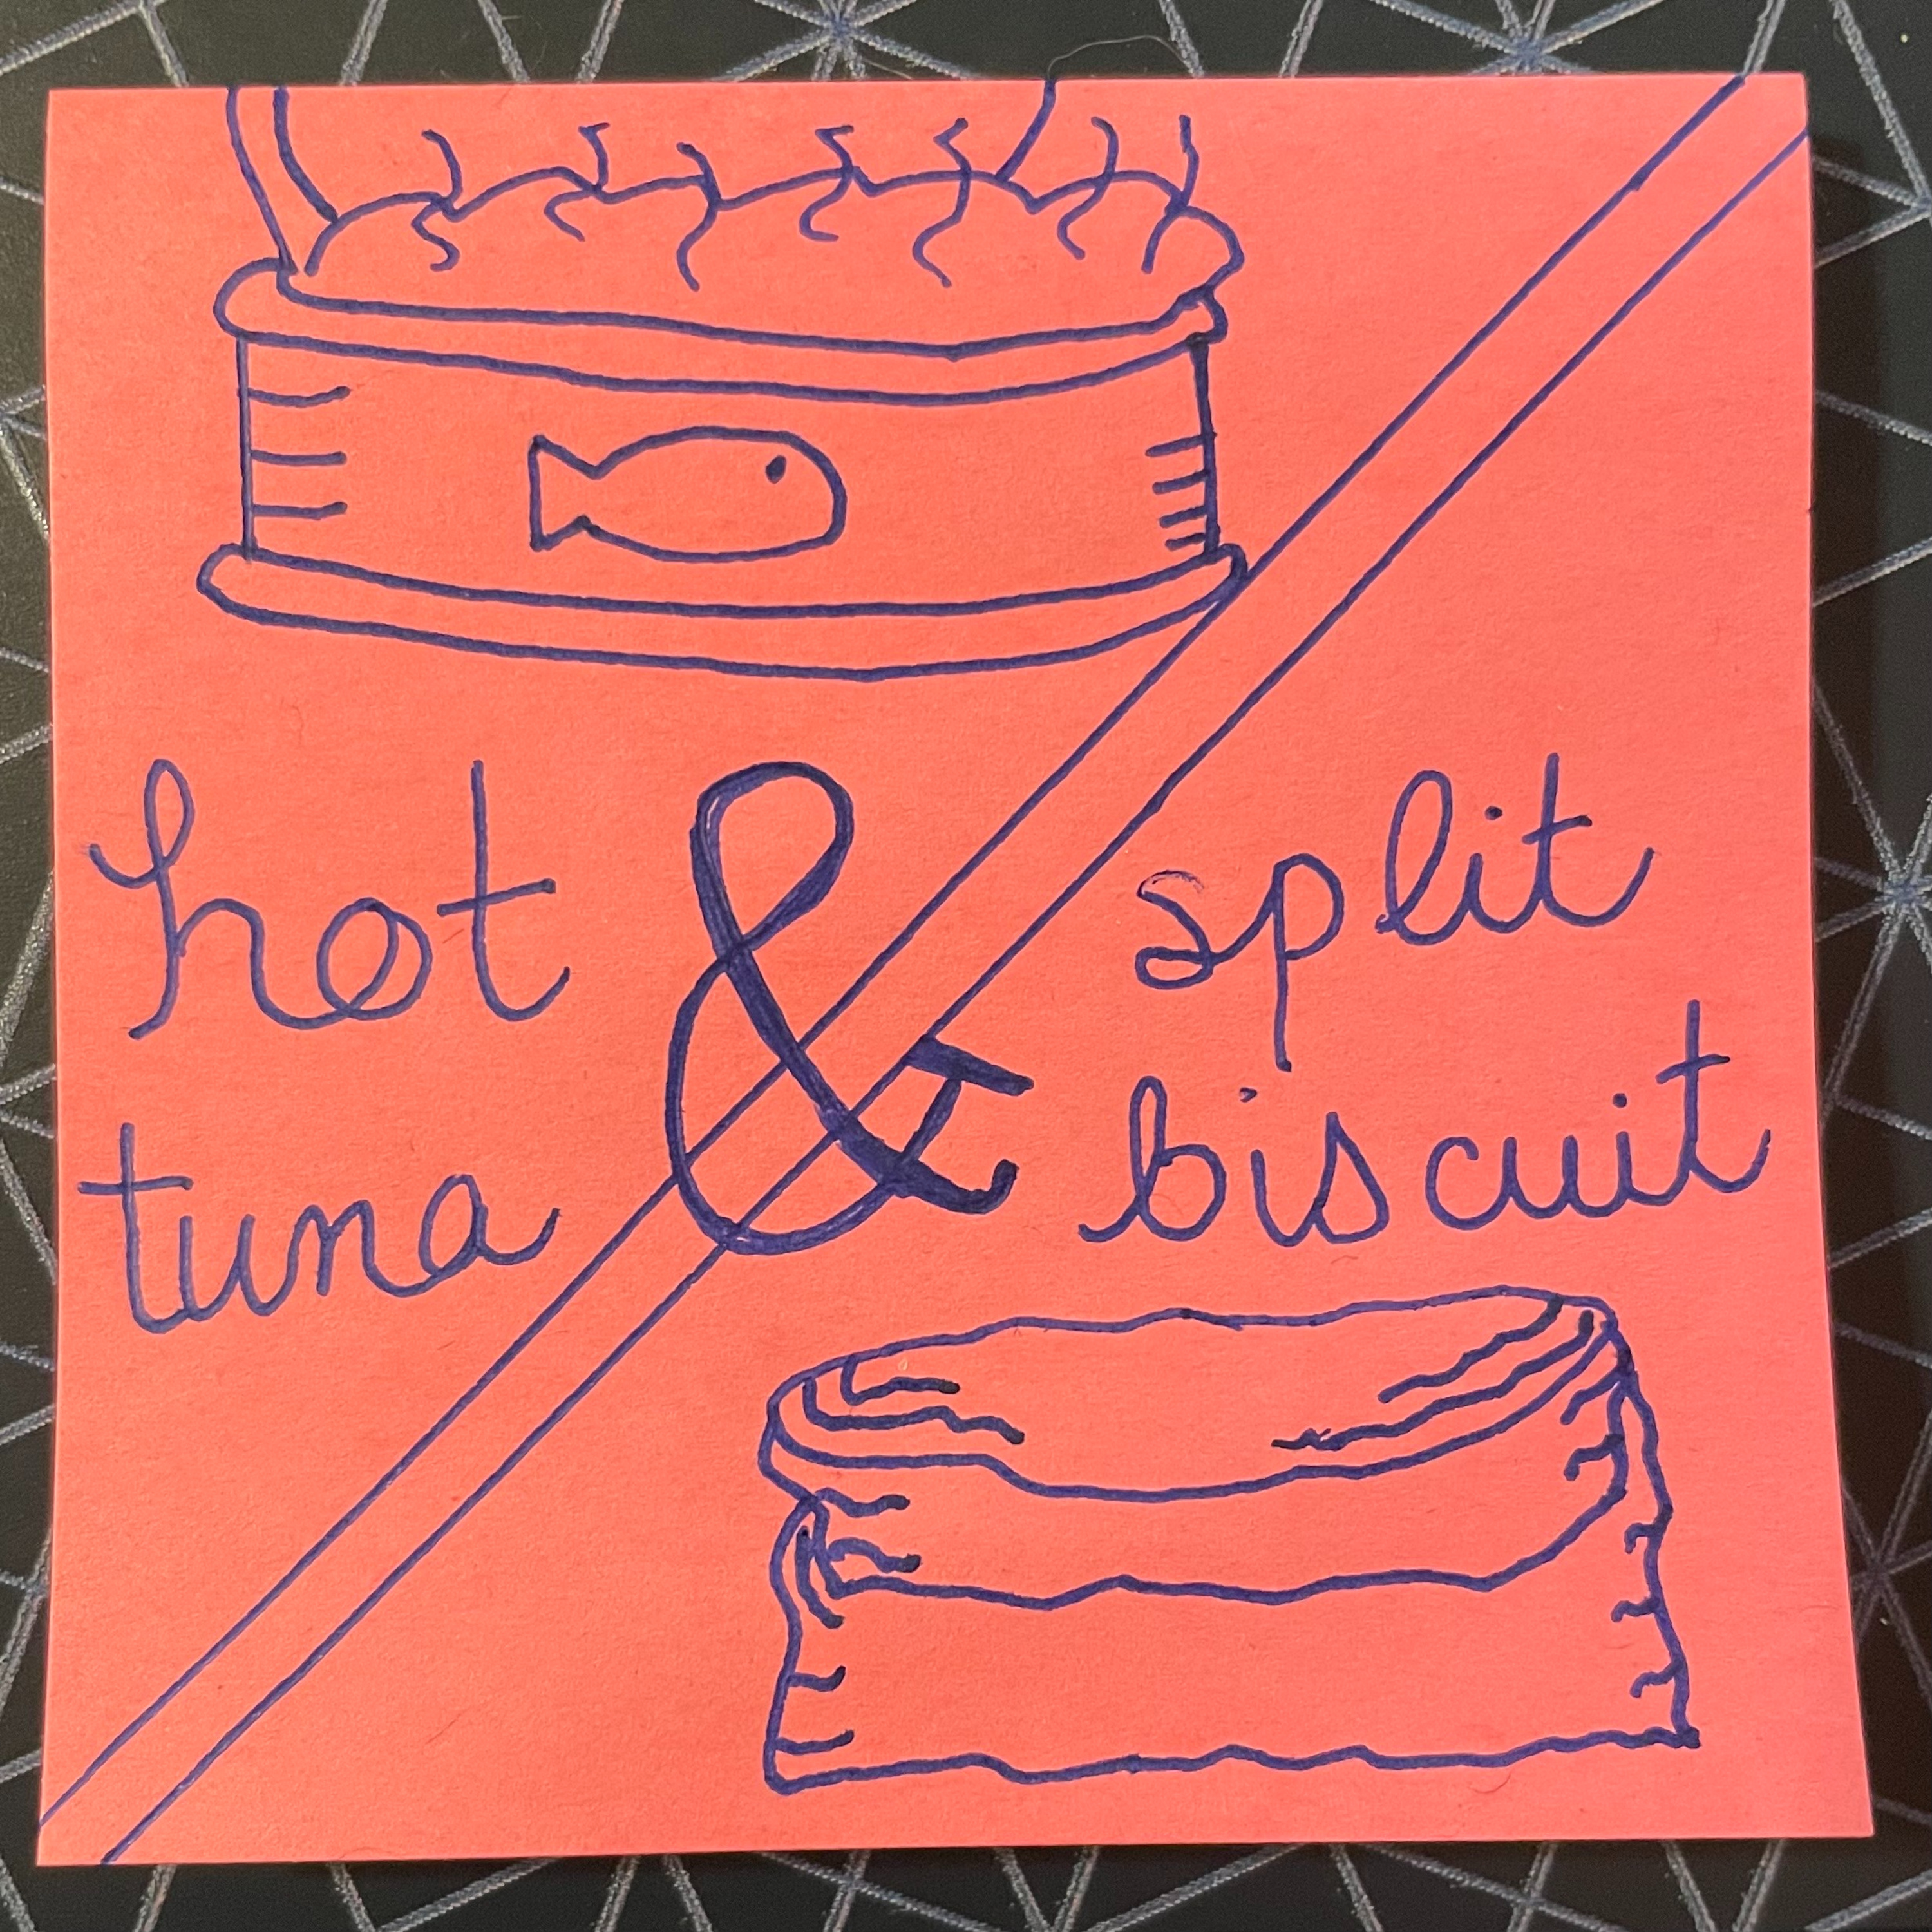 hot
tuna
&
split
biscuit